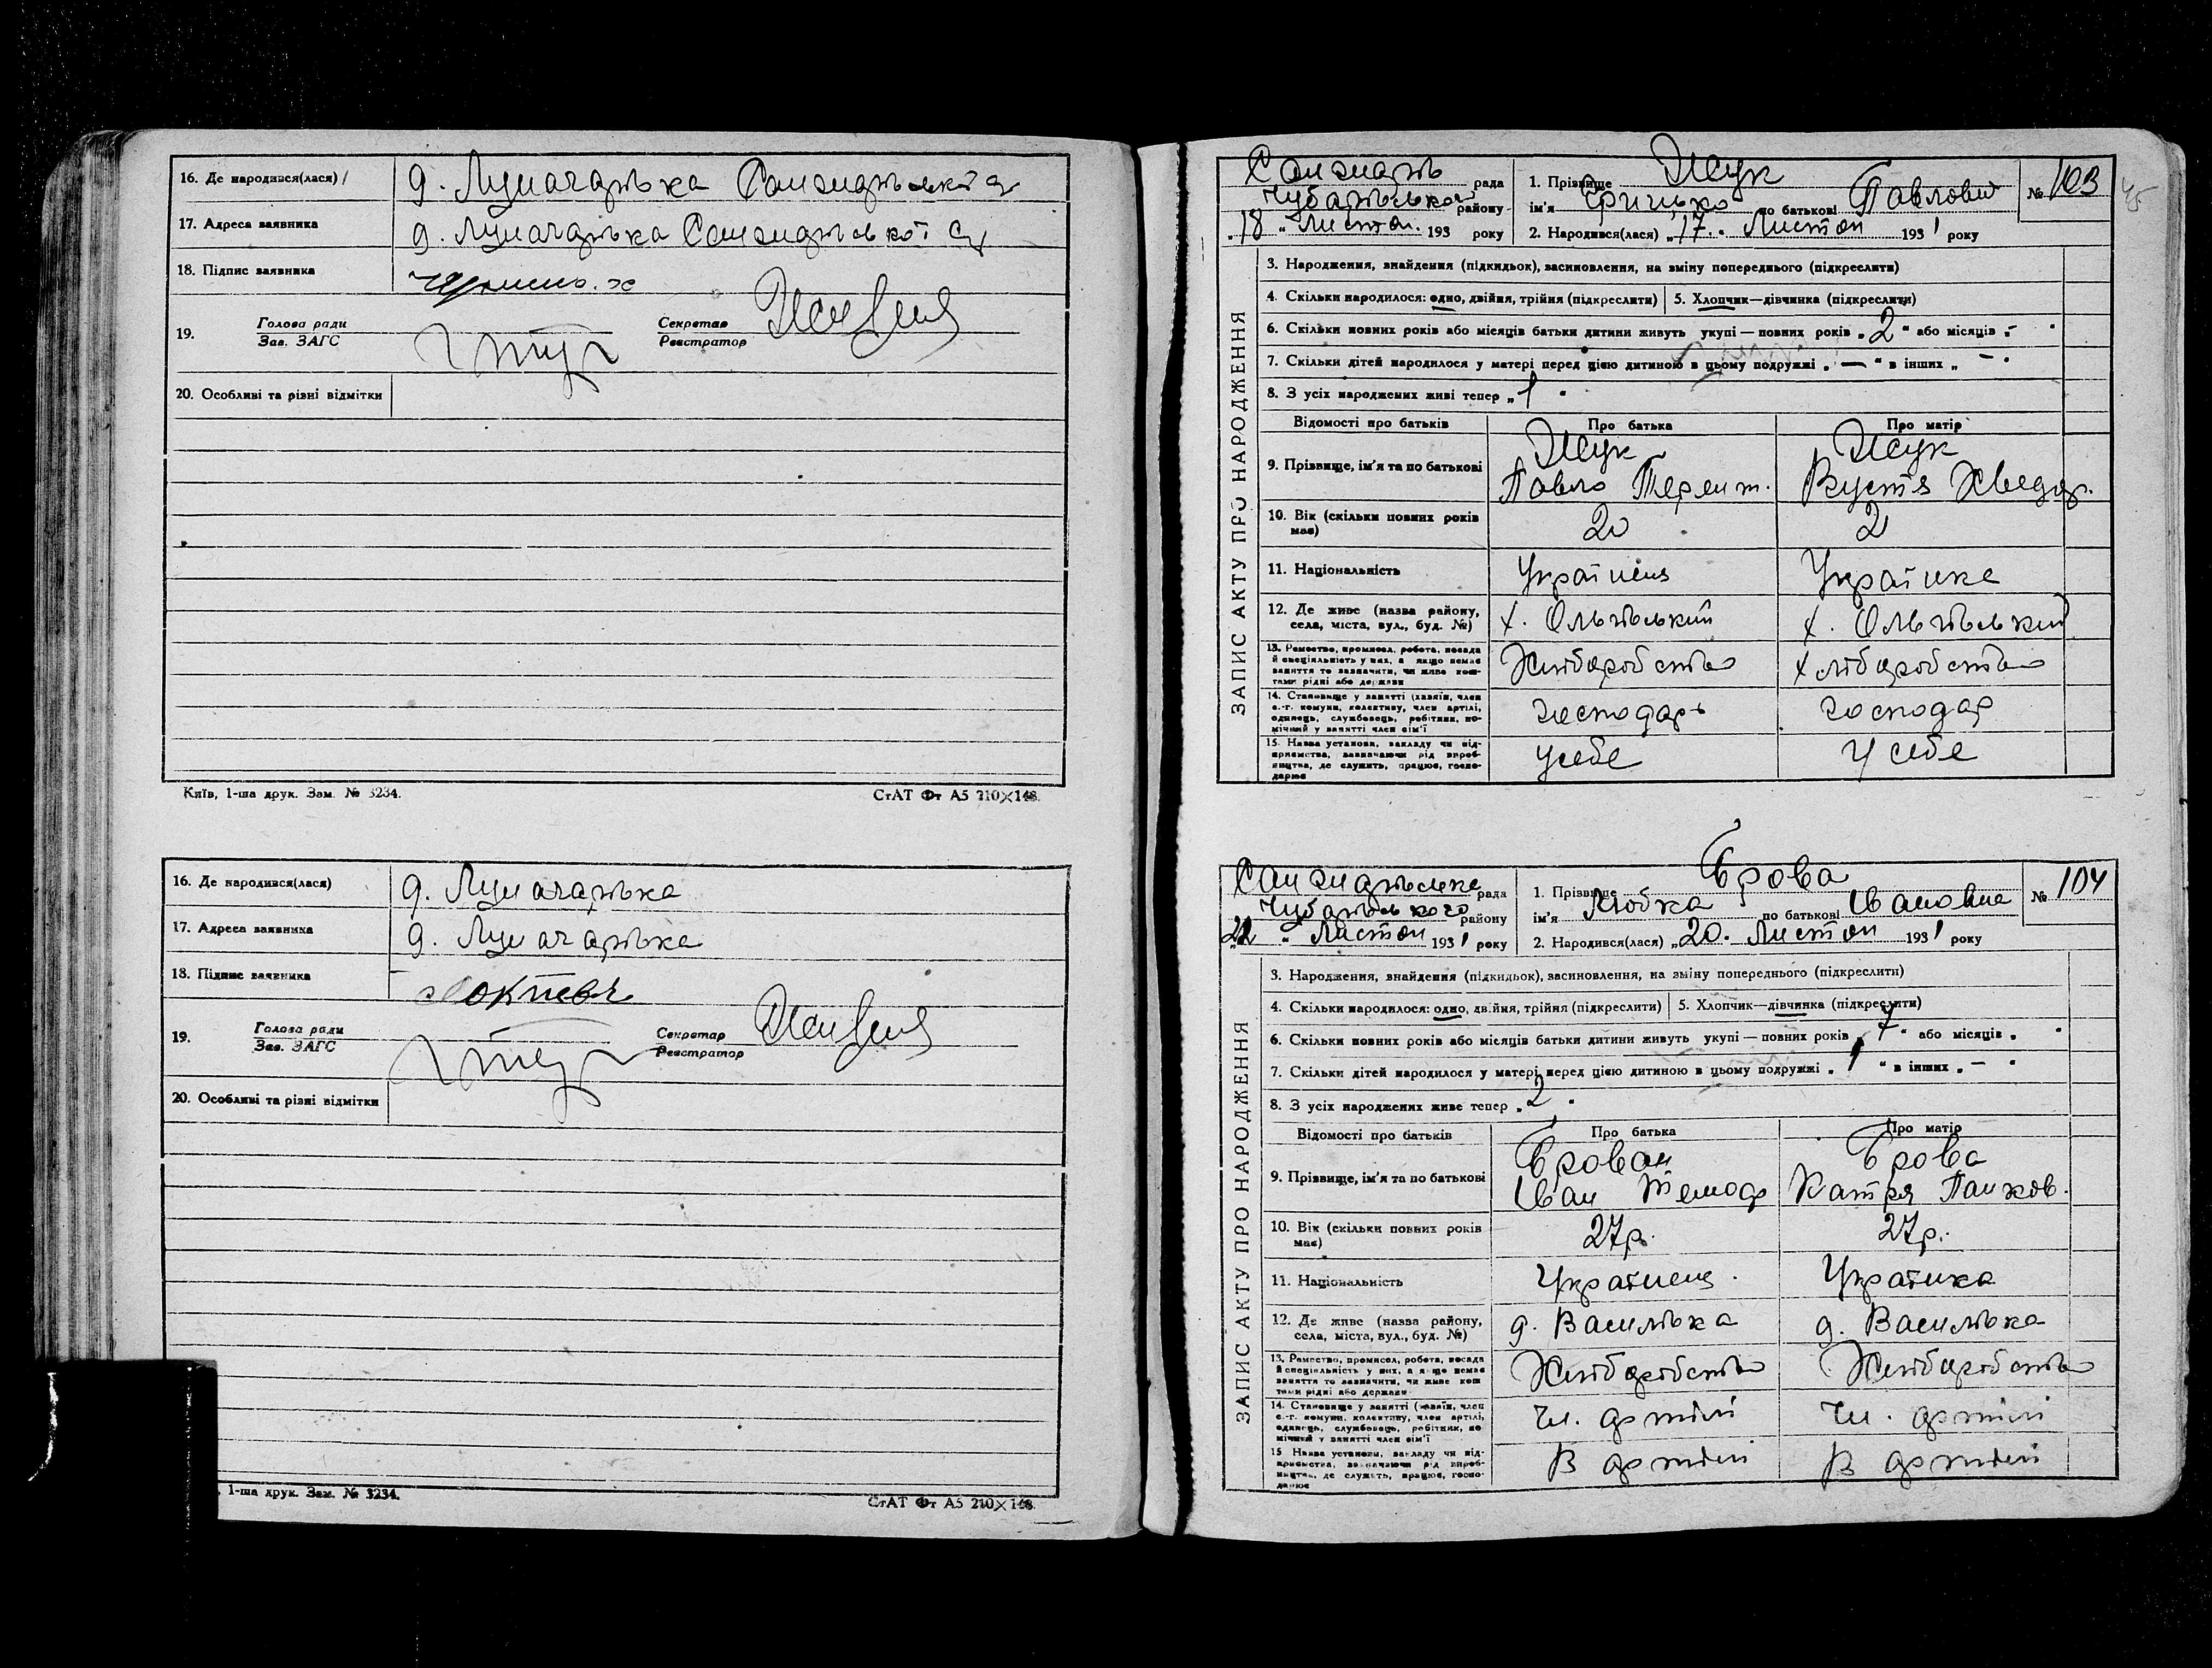 16. Де народився(лася)
д. Луначарівка
17. Адреса заявника
д. Луначарівка
18. Підпис заявника
19. Голова ради
Зав. ЗАГС
Секретар
Реєстратор
20. Особливі та різні відмітки
Київ, 1-ша друк. Зам. № 3234.
СтАТ Фт А5 210×148.
16. Де народився(лася)
д. Луначарівка
17. Адреса заявника
д. Луначарівка
18. Підпис заявника
19. Голова ради
Зав. ЗАГС
Секретар
Реєстратор
20. Особливі та різні відмітки
1-ша друк. Зам. № 3234.
СтАТ Фт А5 210×148.
ЗАПИС АКТУ ПРО НАРОДЖЕННЯ
рада
Чубарівського району
"18" Листоп. 193 року
1. Прізвище Жук
ім'я Грицько по батькові Павлович
№ 103
2. Народився(лася) "17" Листоп 1931 року
3. Народження, знайдення (підкидьок), засиновлення, на зміну попереднього (підкреслити)
4. Скільки народилося: одно, двійня, трійня (підкреслити) 5. Хлопчик—дівчинка (підкреслити)
6. Скільки повних років або місяців батьки дитини живуть укупі — повних років "2" або місяців "-"
7. Скільки дітей народилося у матері перед цією дитиною в цьому подружжі "—" в інших "—"
8. З усіх народжених живі тепер "1"
Відомості про батьків Про батька Про матір
9. Прізвище, ім'я та по батькові
Жук Жук
Павло Терент. Вустя Хведор.
10. Вік (скільки повних років має)
20
11. Національність
Українець Українка
12. Де живе (назва району, села, міста, вул., буд. №)
х. Ольгівський х. Ольгівський
13. Ремество, промисел, робота, посада й спеціяльність у них, а якщо немає заняття то зазначити, чи живе коштами рідні або держави
Хліборобство хліборобство
14. Становище у занятті (хазяїн, член с.-г. комуни, колективу, член артілі, одинець, службовець, робітник, помічний у занятті член сім'ї
господарь господар
15. Назва установи, закладу чи підприємства, зазначаючи рід виробництва, де служить, працює, господарює
У себе У себе
ЗАПИС АКТУ ПРО НАРОДЖЕННЯ
рада
Чубарівського району
"22" Листоп 1931 року
1. Прізвище Єрова
ім'я Любка по батькові Івановна
№ 104
2. Народився(лася) "20" Листоп 1931 року
3. Народження, знайдення (підкидьок), засиновлення, на зміну попереднього (підкреслити)
4. Скільки народилося: одно, двійня, трійня (підкреслити) 5. Хлопчик—дівчинка (підкреслити)
6. Скільки повних років або місяців батьки дитини живуть укупі — повних років "7" або місяців
7. Скільки дітей народилося у матері перед цією дитиною в цьому подружжі "1" в інших "—"
8. З усіх народжених живе тепер "2"
Відомості про батьків Про батька Про матір
9. Прізвище, ім'я та по батькові
Єрова
Іван Катря Панков.
10. Вік (скільки повних років має)
27р. 27р.
11. Національність
Українець. Українка
12. Де живе (назва району, села, міста, вул., буд. №)
д. Василівка д. Василівка
13. Ремество, промисел, робота, посада й спеціяльність у них, а якщо немає заняття то зазначити, чи живе коштами рідні або держави
Хліборобство Хліборобство
14. Становище у занятті (хазяїн, член с.-г. комуни, колективу, член артілі, одинець, службовець, робітник, помічний у занятті член сім'ї
Чл. артілі Чл. артілі
15. Назва установи, закладу чи підприємства, зазначаючи рід виробництва, де служить, працює, господарює
В артілі В артілі